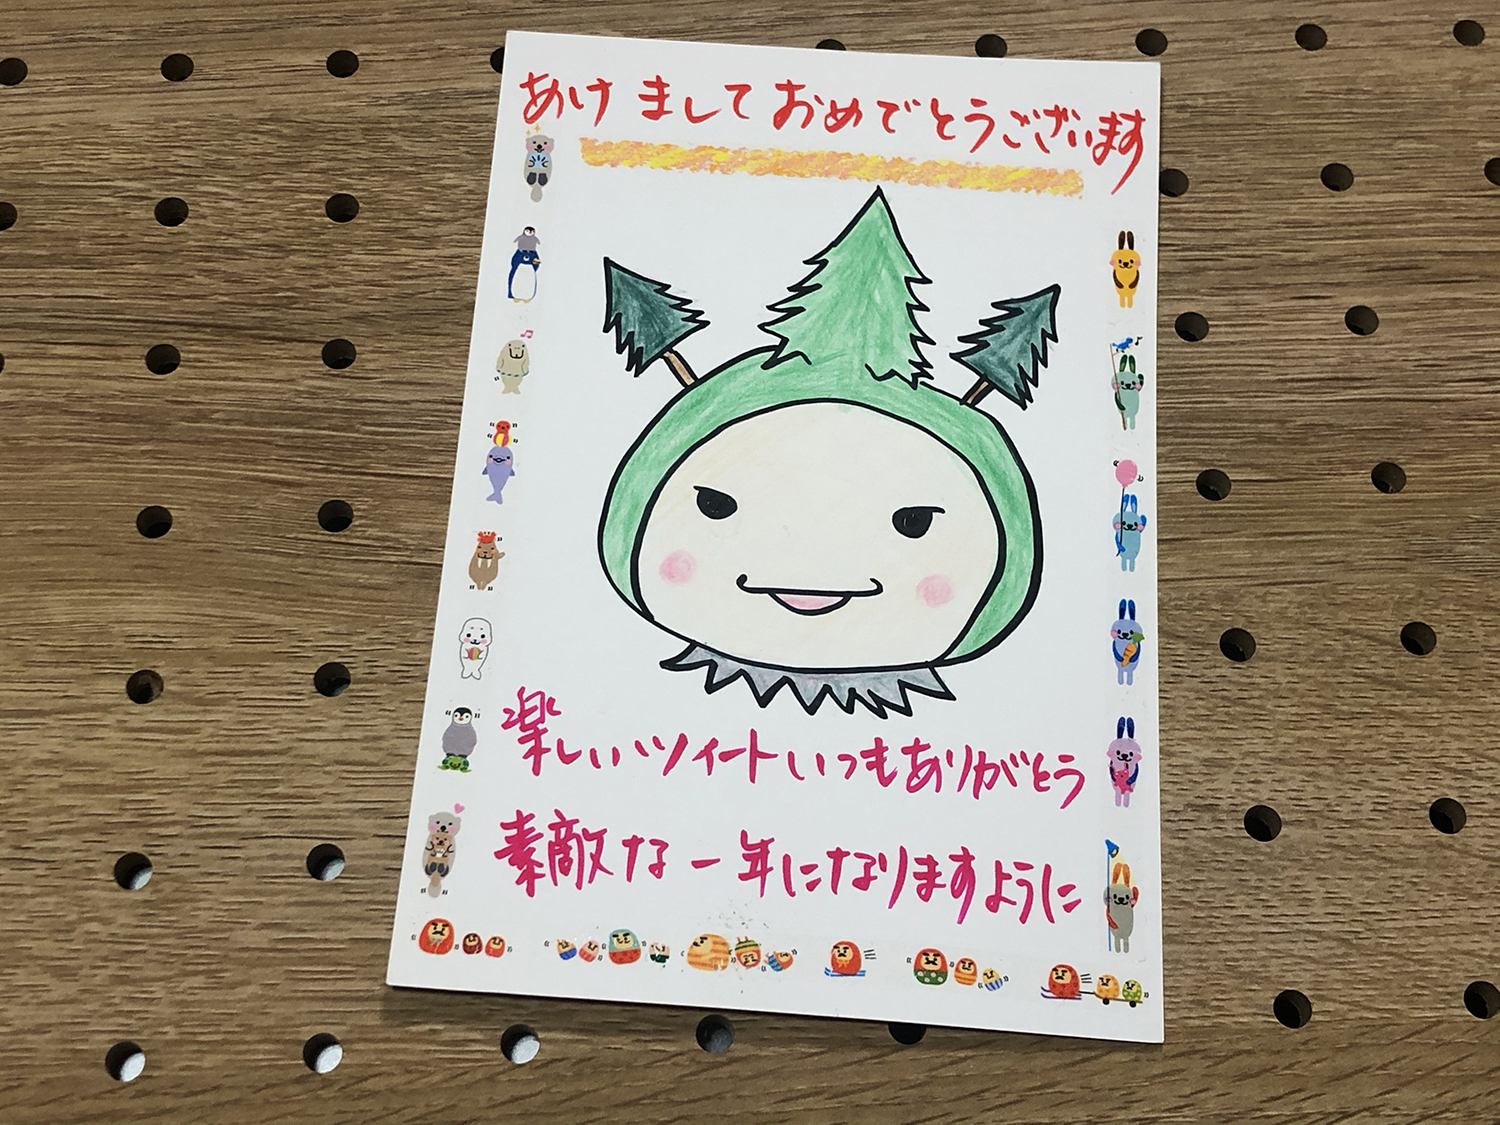 あけましておめでとうございます
楽しいツイートいつもありがとう
素敵な一年になりますように